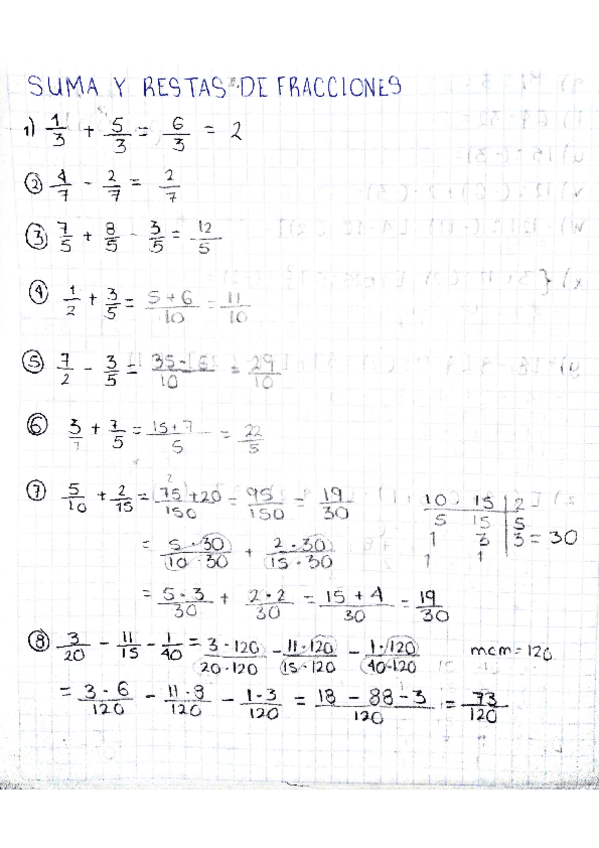 SUMA Y RESTAS DE FRACCIONES
1) 1/3 + 5/3 = 6/3 = 2
② 4/7 - 2/7 = 2/7
③ 7/5 + 8/5 - 3/5 = 12/5
④ 1/2 + 3/5 = (5+6)/10 = 11/10
⑤ 7/2 - 3/5 = (35-6)/10 = 29/10
⑥ 3/1 + 7/5 = (15+7)/5 = 22/5
⑦ 5/10 + 2/15 = (75+20)/150 = 95/150 = 19/30
10 15 | 2
5 15 | 5
1 3 | 3 = 30
1 1
= (5·30)/(10·30) + (2·30)/(15·30)
= (5·3)/30 + (2·2)/30 = (15+4)/30 = 19/30
⑧ 3/20 - 11/15 - 1/40 = (3·120)/(20·120) - (11·120)/(15·120) - (1·120)/(40·120) mcm=120
= (3·6)/120 - (11·8)/120 - (1·3)/120 = (18-88-3)/120 = 73/120